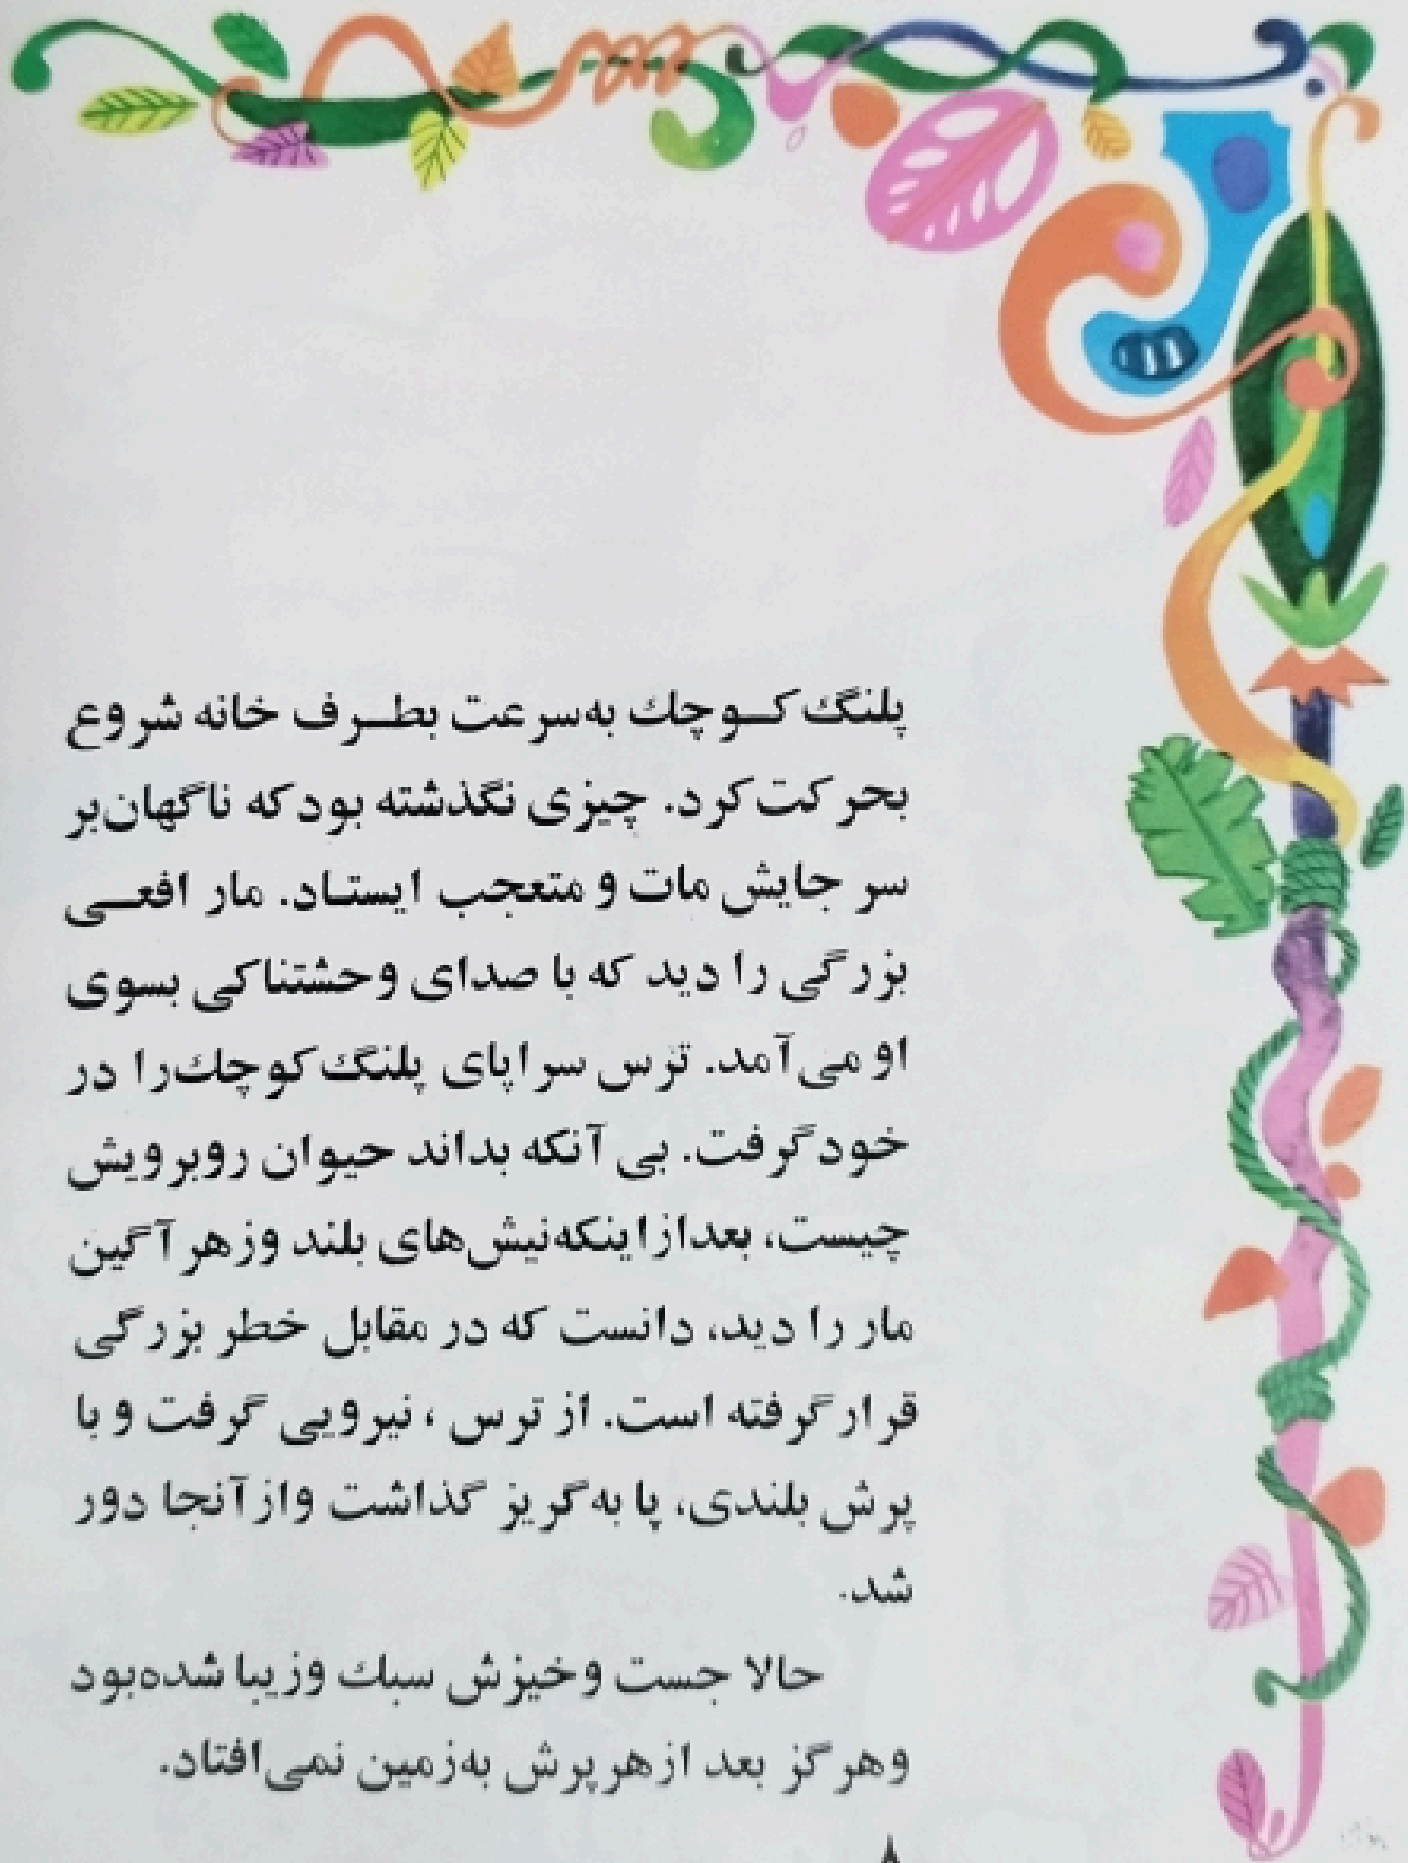 پلنگ کوچك به‌سرعت بطرف خانه شروع
بحرکت کرد. چیزی نگذشته بود که ناگهان بر
سر جایش مات و متعجب ایستاد. مار افعی
بزرگی را دید که با صدای وحشتناکی بسوی
او می‌آمد. ترس سراپای پلنگ کوچك را در
خود گرفت. بی آنکه بداند حیوان روبرویش
چیست، بعد از اینکه نیش‌های بلند و زهرآگین
مار را دید، دانست که در مقابل خطر بزرگی
قرار گرفته است. از ترس ، نیرویی گرفت و با
پرش بلندی، پا به گریز گذاشت و از آنجا دور
شد.
حالا جست و خیزش سبك و زیبا شده بود
و هرگز بعد از هر پرش به‌زمین نمی‌افتاد.
۸